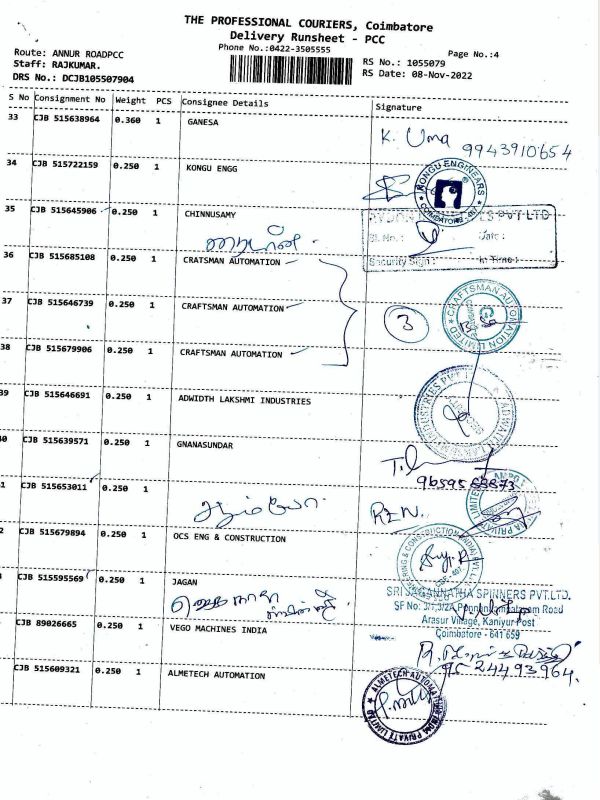 THE PROFESSIONAL COURIERS, Coimbatore
Delivery Runsheet - PCC
Phone No.:0422-3505555
Page No.:4
Route: ANNUR ROADPCC
Staff: RAJKUMAR.
DRS No.: DCJB105507904
RS No.: 1055079
RS Date: 08-Nov-2022
S No Consignment No Weight PCS Consignee Details Signature
33 CJB 515638964 0.360 1 GANESA
K. Uma 9943910654
34 CJB 515722159 0.250 1 KONGU ENGG
KONGU ENGINEARS
35 CJB 515645906 0.250 1 CHINNUSAMY
PVT LTD
Sl. No.: Date:
Security Sign: In Time:
36 CJB 515685108 0.250 1 CRATSMAN AUTOMATION
37 CJB 515646739 0.250 1 CRAFTSMAN AUTOMATION
3
CRAFTSMAN AUTOMATION LIMITED
38 CJB 515679906 0.250 1 CRAFTSMAN AUTOMATION
39 CJB 515646691 0.250 1 ADWIDTH LAKSHMI INDUSTRIES
40 CJB 515639571 0.250 1 GNANASUNDAR
1 CJB 515653011 0.250 1
2 CJB 515679894 0.250 1 OCS ENG & CONSTRUCTION
CJB 515595569 0.250 1 JAGAN
SRI JAGANNATHA SPINNERS PVT.LTD.
Arasur Village, Kaniyur Post
Coimbatore - 641 659
CJB 89026665 0.250 1 VEGO MACHINES INDIA
CJB 515609321 0.250 1 ALMETECH AUTOMATION
ALMETECH AUTOMATION INDIA PRIVATE LIMITED